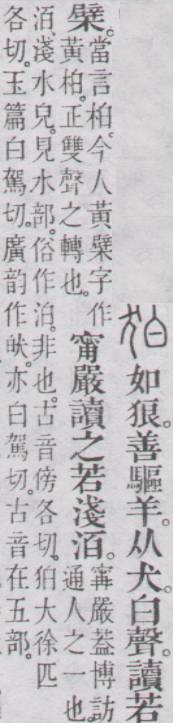 狛如狼。善驅羊。从犬白聲。讀若
檗。當言柏。今人黃檗字作
黃柏。正雙聲之轉也。
甯嚴讀之若淺洦。甯嚴葢博訪
通人之一也。
洦淺水皃。見水部。俗作泊。非也。古音傍各切。狛大徐匹
各切。玉篇白駕切。廣韵作。亦白駕切。古音在五部。